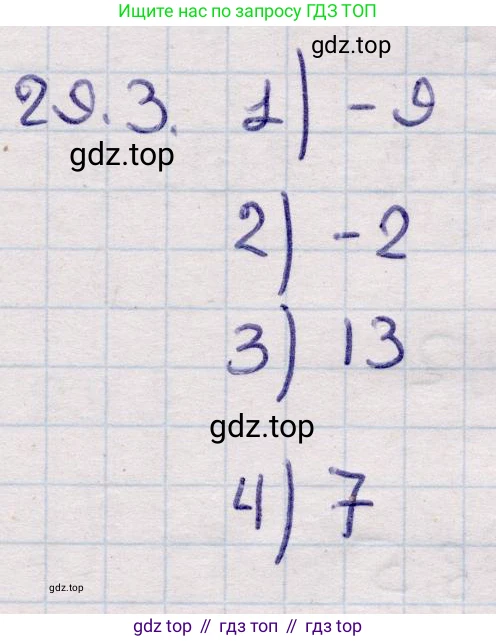 Ищите нас по запросу ГДЗ ТОП
gdz.top
29.3. 1) -9
gdz.top
2) -2
3) 13
gdz.top
4) 7
gdz.top
gdz.top // гдз топ // gdz.top